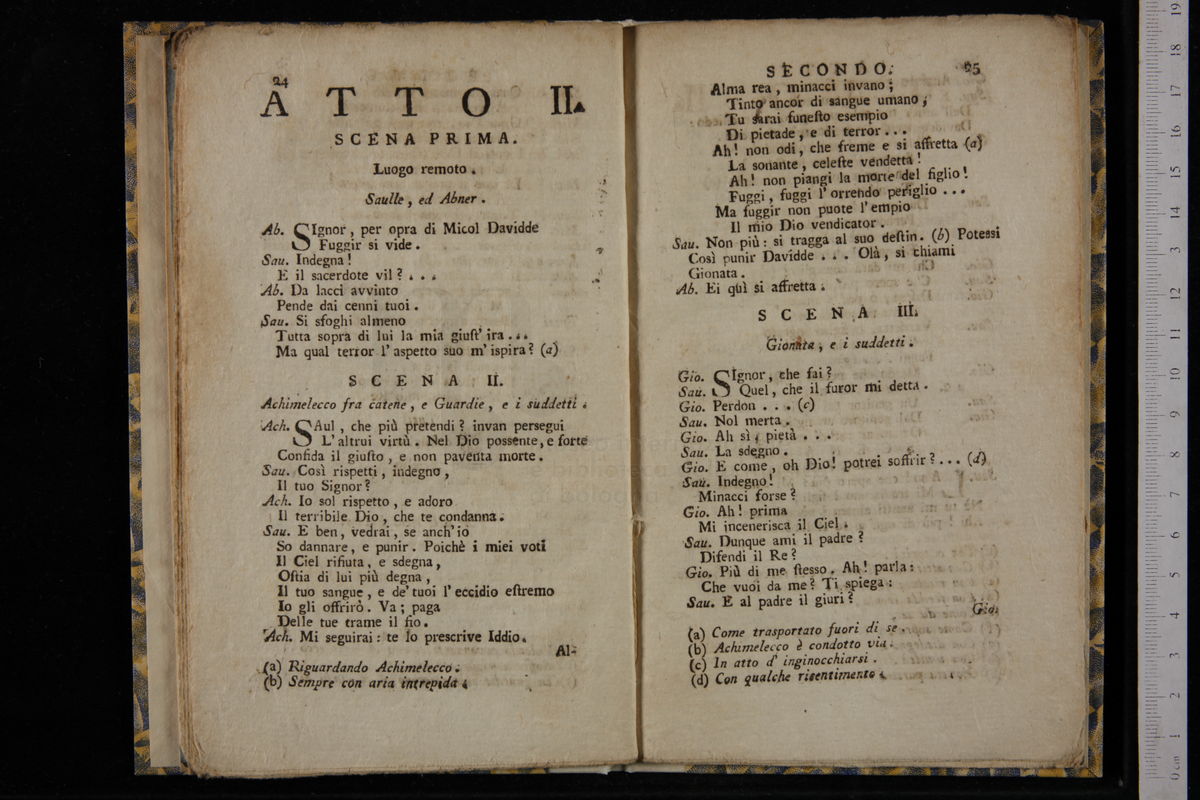 24
ATTO II.
SCENA PRIMA.
Luogo remoto.
Saulle, ed Abner.
Ab. SIgnor, per opra di Micol Davidde
Fuggir si vide.
Sau. Indegna!
E il sacerdote vil? . . .
Ab. Da lacci avvinto
Pende dai cenni tuoi.
Sau. Si sfoghi almeno
Tutta sopra di lui la mia giuſt' ira . . .
Ma qual terror l' aspetto suo m' ispira? (a)
SCENA II.
Achimelecco fra catene, e Guardie, e i suddetti.
Ach. SAul, che più pretendi? invan persegui
L' altrui virtù. Nel Dio possente, e forte
Confida il giuſto, e non paventa morte.
Sau. Così rispetti, indegno,
Il tuo Signor?
Ach. Io sol rispetto, e adoro
Il terribile Dio, che te condanna.
Sau. E ben, vedrai, se anch' io
So dannare, e punir. Poichè i miei voti
Il Ciel rifiuta, e sdegna,
Oſtia di lui più degna,
Il tuo sangue, e de' tuoi l' eccidio eſtremo
Io gli offrirò. Va; paga
Delle tue trame il fio.
Ach. Mi seguirai: te lo prescrive Iddio.
Al-
(a) Riguardando Achimelecco.
(b) Sempre con aria intrepida.
SECONDO. 25
Alma rea, minacci invano;
Tinto ancor di sangue umano,
Tu sarai funeſto esempio
Di pietade, e di terror . . .
Ah! non odi, che freme e si affretta (a)
La sonante, celeſte vendetta!
Ah! non piangi la morte del figlio!
Fuggi, fuggi l' orrendo periglio . . .
Ma fuggir non puote l' empio
Il mio Dio vendicator.
Sau. Non più: si tragga al suo deſtin. (b) Potessi
Così punir Davidde . . . Olà, si chiami
Gionata.
Ab. Ei quì si affretta.
SCENA III.
Gionata, e i suddetti.
Gio. SIgnor, che fai?
Sau. Quel, che il furor mi detta.
Gio. Perdon . . . (c)
Sau. Nol merta.
Gio. Ah sì, pietà . . .
Sau. La sdegno.
Gio. E come, oh Dio! potrei soffrir? . . . (d)
Sau. Indegno!
Minacci forse?
Gio. Ah! prima
Mi incenerisca il Ciel.
Sau. Dunque ami il padre?
Difendi il Re?
Gio. Più di me ſtesso. Ah! parla:
Che vuoi da me? Ti spiega:
Sau. E al padre il giuri?
Gio.
(a) Come trasportato fuori di se.
(b) Achimelecco è condotto via.
(c) In atto d' inginocchiarsi.
(d) Con qualche risentimento.
19
18
17
16
15
14
13
12
11
10
9
8
7
6
5
4
3
2
1
0 cm